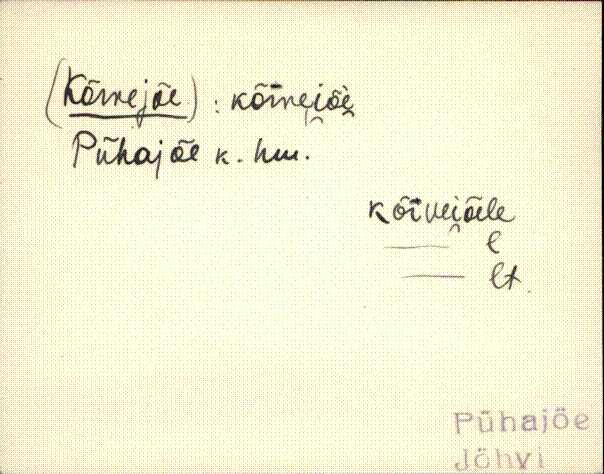 (Kõrvejõe) : kõrvei̯õe̯
Pühajõe k. hm.
kõrvei̯õele
—— l
—— lt.
Pühajõe
Jõhvi